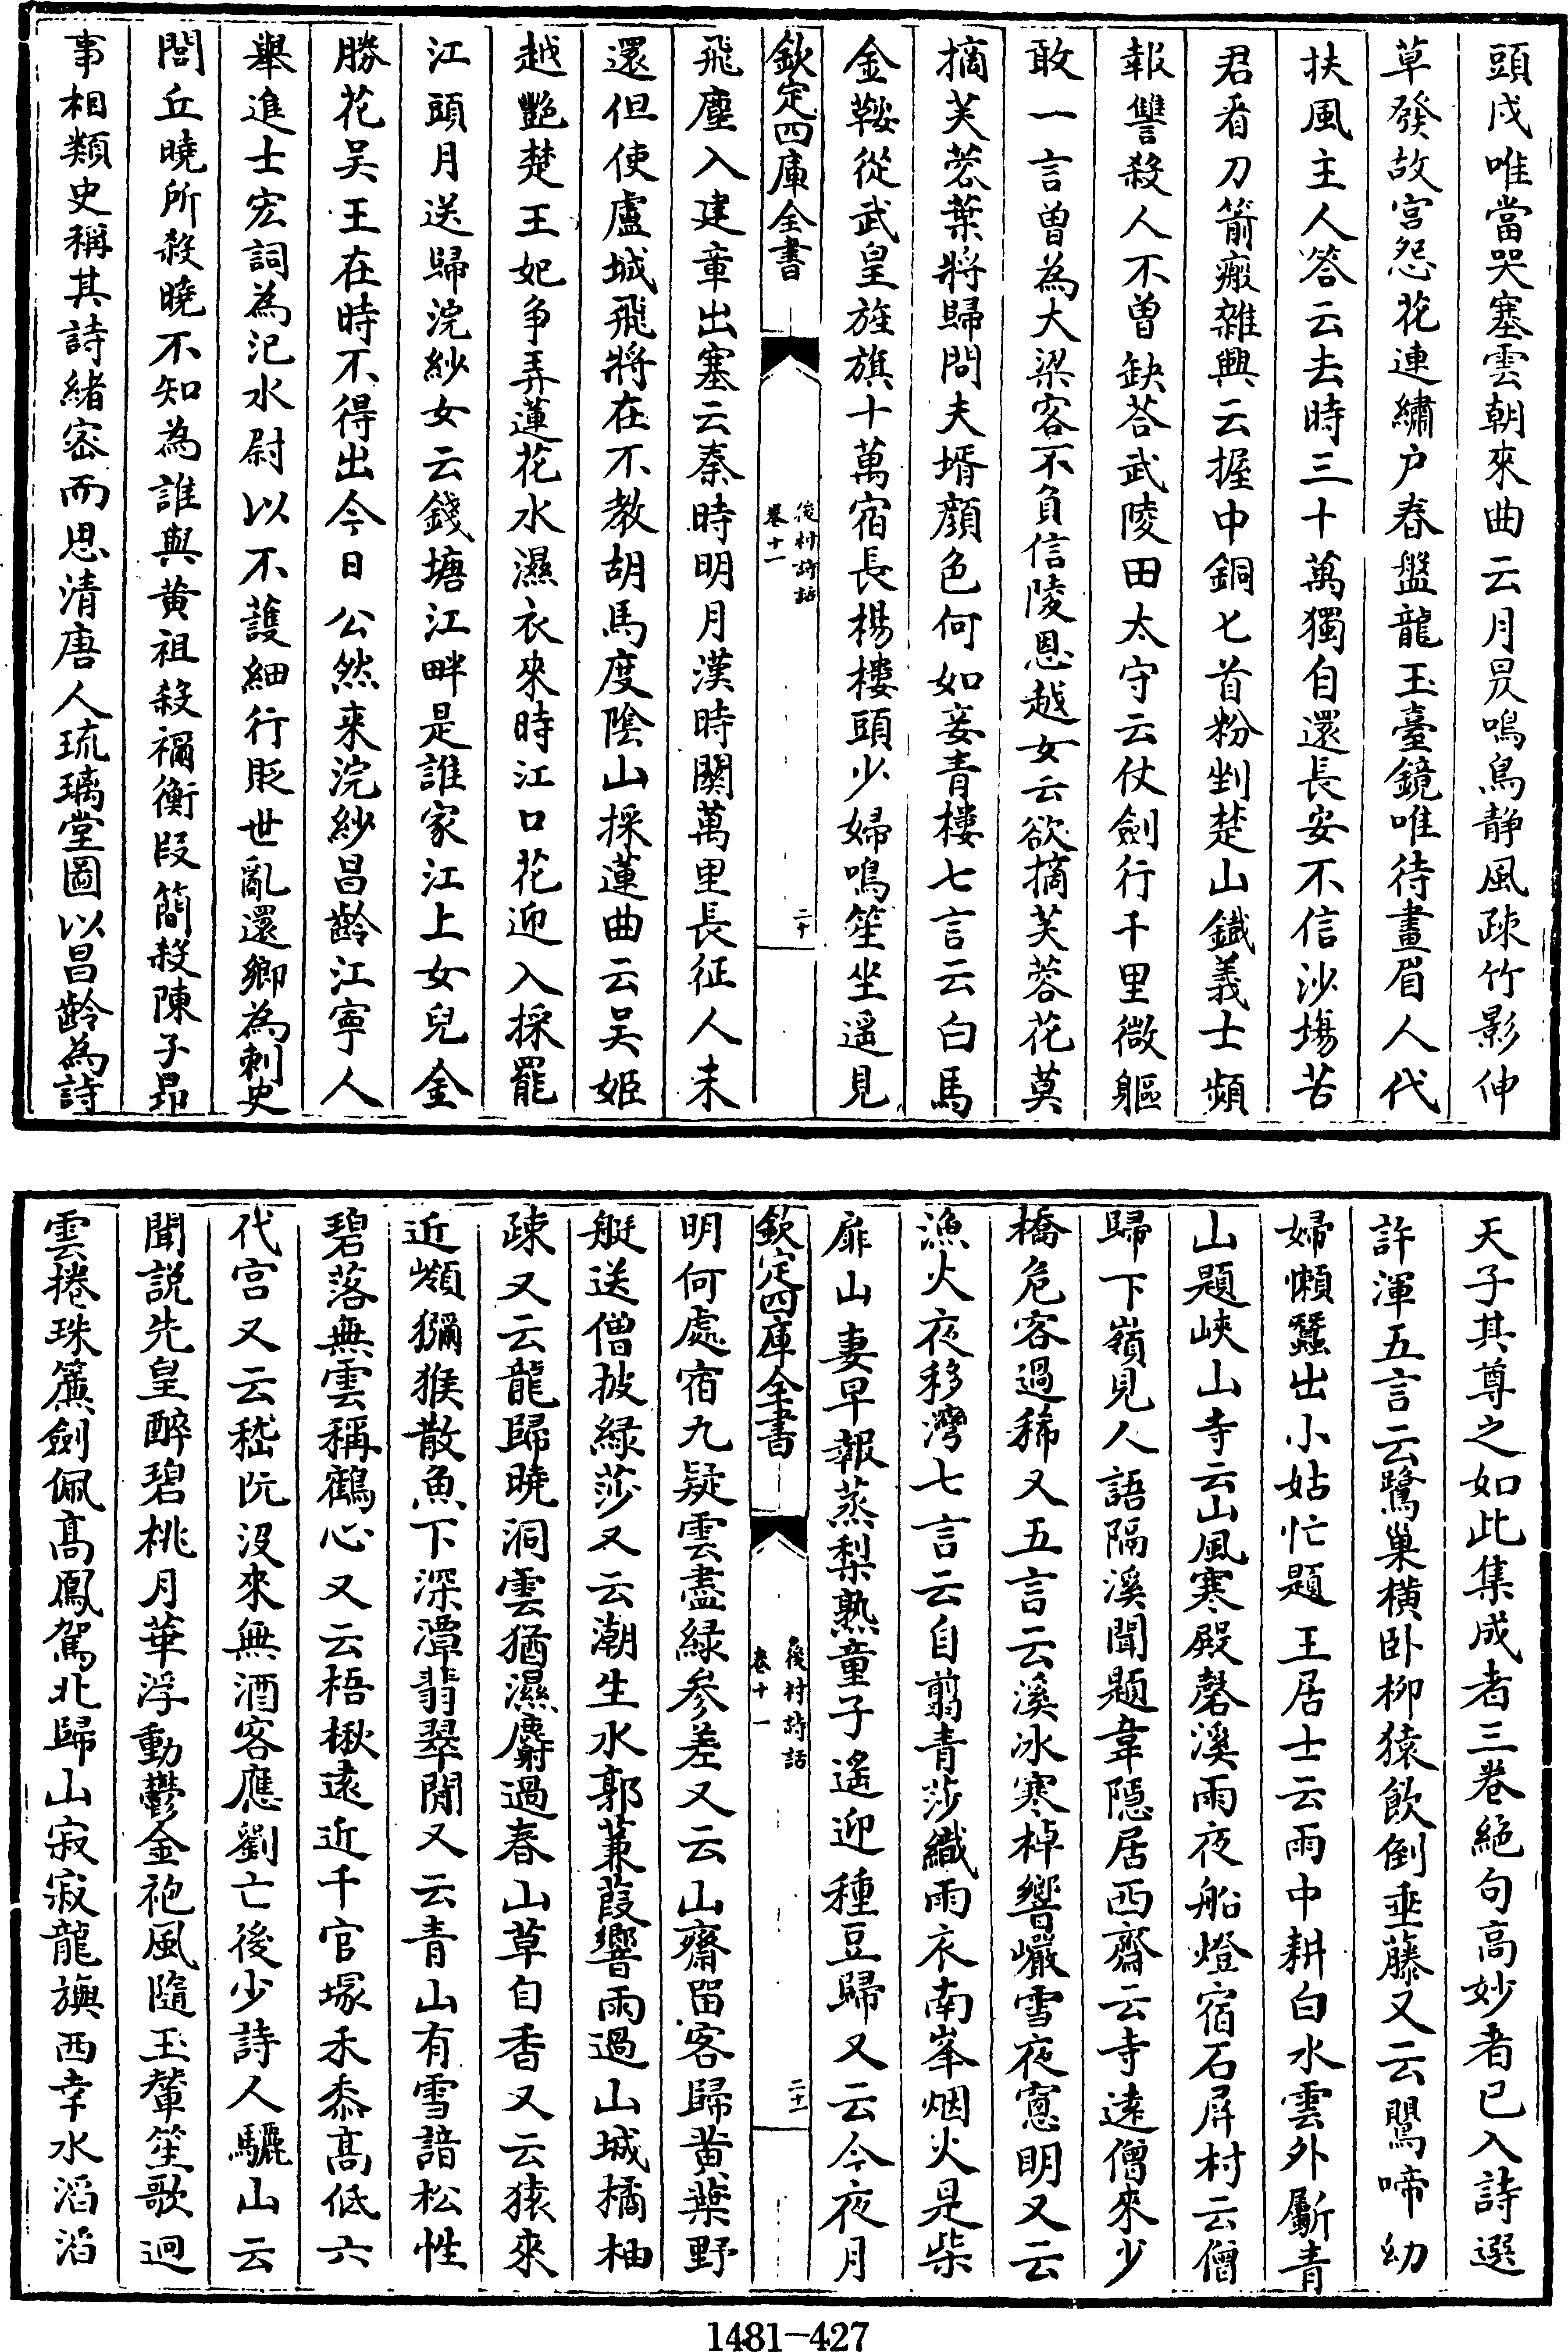 頭戍唯當哭塞雲朝來曲云月昃鳴鳥静風疎竹影伸
草發故宫怨花連繡户春盤龍玉臺鏡唯待畫眉人代
扶風主人答云去時三十萬獨自還長安不信沙塲苦
君看刀箭瘢雜興云握中銅匕首粉剉楚山鐵義士頻
報讐殺人不曾缺荅武陵田太守云仗劍行千里微軀
敢一言曽為大梁客不負信陵恩越女云欲摘芙蓉花莫
摘芙蓉葉將歸問夫壻顔色何如妾青樓七言云白馬
金鞍從武皇旌旗十萬宿長楊樓頭少婦鳴笙坐遥見
欽定四庫全書
後村詩話
卷十一
二十
飛塵入建章出塞云秦時明月漢時關萬里長征人未
還但使盧城飛將在不教胡馬度陰山採蓮曲云吴姬
越艷楚王妃争弄蓮花水濕衣來時江口花迎入採罷
江頭月送歸浣紗女云錢塘江畔是誰家江上女兒金
勝花吴王在時不得出今日公然来浣紗昌齡江寧人
舉進士宏詞為汜水尉以不護細行貶世亂還鄉為刺史
閭丘曉所殺曉不知為誰與黄祖殺禰衡叚簡殺陳子昻
事相類史稱其詩緒宻而思清唐人琉璃堂圖以昌齡為詩
天子其尊之如此集成者三巻絶句高妙者已入詩選
許渾五言云鷺巢横卧柳猿飲倒垂藤又云鶯啼幼
婦懶蠶出小姑忙題王居士云雨中耕白水雲外斸青
山題峽山寺云山風寒殿磬溪雨夜船燈宿石屏村云僧
歸下嶺見人語隔溪聞題韋隱居西齋云寺逺僧來少
橋危客過稀又五言云溪冰寒棹響巖雪夜窻明又云
漁火夜移灣七言云自翦青莎織雨衣南峯烟火是柴
扉山妻早報蒸梨熟童子遥迎種豆歸又云今夜月
欽定四庫全書
後村詩話
卷十一
二十一
明何處宿九疑雲盡緑参差又云山齋留客歸黄葉野
艇送僧披緑莎又云潮生水郭蒹葭響雨過山城橘柚
疎又云龍歸曉洞雲猶濕麝過春山草自香又云猿來
近嶺獼猴散魚下深潭翡翠閒又云青山有雪諳松性
碧落無雲稱鶴心又云梧楸逺近千官塚禾黍髙低六
代宫又云嵇阮没來無酒客應劉亡後少詩人驪山云
聞説先皇醉碧桃月華浮動鬱金袍風隨玉輦笙歌迥
雲捲珠簾劍佩髙鳳駕北歸山寂寂龍旟西幸水滔滔
1481-427